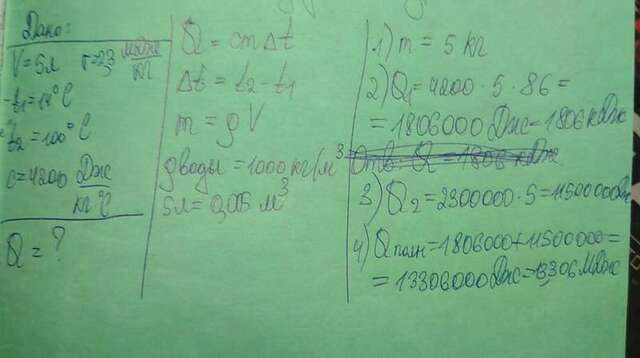 Дано:
V=5л r=2,3 мДж/кг
t₁=14°C
t₂=100°C
c=4200 Дж/кг°C
Q=?
Q=cmΔt
Δt=t₂-t₁
m=ρV
ρводы=1000кг/м³
5л=0,005м³
1) m=5кг
2) Q₁=4200·5·86=
=1806000Дж=1806кДж
Отв: Q=1806кДж
3) Q₂=2300000·5=11500000Дж
4) Qполн=1806000+11500000=
=13306000Дж=13,306МДж